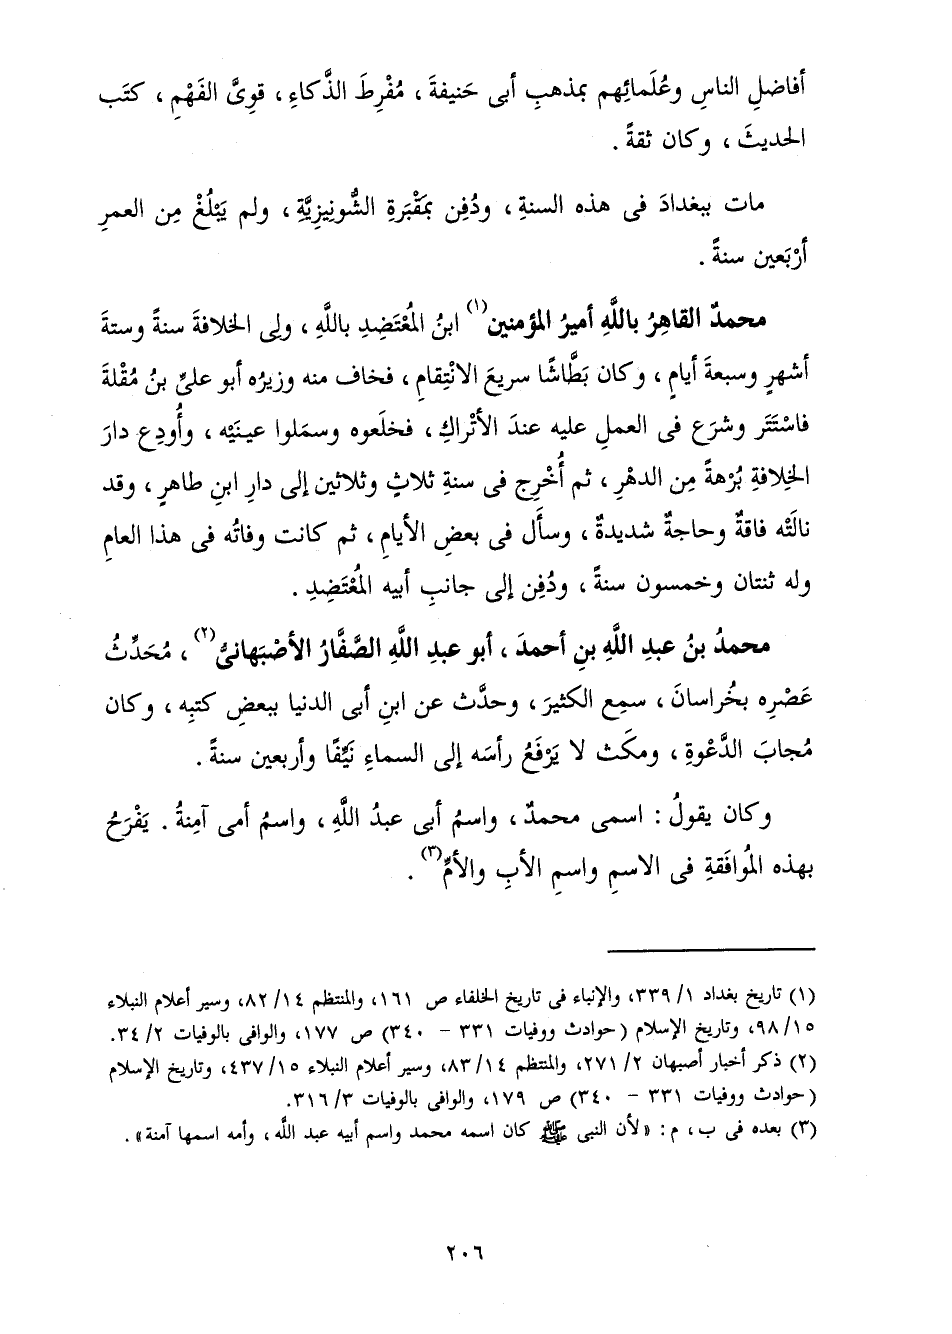 أفاضلِ الناسِ وعُلَمائِهم بمذهبِ أبى حَنيفةَ ، مُفْرِطَ الذَّكاءِ ، قوِىَّ الفَهْمِ ، كتَب
الحديثَ ، وكان ثقةً .
مات ببغدادَ فى هذه السنةِ ، ودُفِن بمَقْبَرةِ الشُّونِيزِيَّةِ ، ولم يَبْلُغْ مِن العمرِ
أرْبَعين سنةً .
محمدٌ القاهِرُ باللَّهِ أميرُ المؤمنين(١) ابنُ المُعْتَضِدِ باللَّهِ ، ولِى الخلافةَ سنةً وستةَ
أشهرٍ وسبعةَ أيامٍ ، وكان بَطَّاشًا سريعَ الانْتِقامِ ، فخاف منه وزيرُه أبو علىِّ بنُ مُقْلةَ
فاسْتَتَر وشرَع فى العملِ عليه عندَ الأتْراكِ ، فخلَعوه وسمَلوا عينَيْه ، وأُودِع دارَ
الخِلافةِ بُرْهةً مِن الدهْرِ ، ثم أُخْرِج فى سنةِ ثلاثٍ وثلاثين إلى دارِ ابنِ طاهرٍ ، وقد
نالَتْه فاقةٌ وحاجةٌ شديدةٌ ، وسأَل فى بعضِ الأيامِ ، ثم كانت وفاتُه فى هذا العامِ
وله ثنتان وخمسون سنةً ، ودُفِن إلى جانبِ أبيه المُعْتَضِدِ .
محمدُ بنُ عبدِ اللَّهِ بنِ أحمدَ ، أبو عبدِ اللَّهِ الصَّفَّارُ الأصْبَهانىُّ(٢) ، مُحَدِّثُ
عَصْرِه بخُراسانَ ، سمِع الكثيرَ ، وحدَّث عن ابنِ أبى الدنيا ببعضِ كتبِه ، وكان
مُجابَ الدَّعْوةِ ، ومكَث لا يَرْفَعُ رأسَه إلى السماءِ نَيِّفًا وأربعين سنةً .
وكان يقولُ : اسمى محمدٌ ، واسمُ أبى عبدُ اللَّهِ ، واسمُ أمى آمِنةُ . يَفْرَحُ
بهذه المُوافَقةِ فى الاسمِ واسمِ الأبِ والأمِّ(٣) .
(١) تاريخ بغداد ١/ ٣٣٩، والإنباء فى تاريخ الخلفاء ص ١٦١، والمنتظم ١٤/ ٨٢، وسير أعلام النبلاء
١٥/ ٩٨، وتاريخ الإسلام (حوادث ووفيات ٣٣١ - ٣٤٠) ص ١٧٧، والوافى بالوفيات ٢/ ٣٤.
(٢) ذكر أخبار أصبهان ٢/ ٢٧١، والمنتظم ١٤/ ٨٣، وسير أعلام النبلاء ١٥/ ٤٣٧، وتاريخ الإسلام
(حوادث ووفيات ٣٣١ - ٣٤٠) ص ١٧٩، والوافى بالوفيات ٣/ ٣١٦.
(٣) بعده فى ب، م: «لأن النبى ﷺ كان اسمه محمد واسم أبيه عبد اللَّه، وأمه اسمها آمنة».
٢٠٦